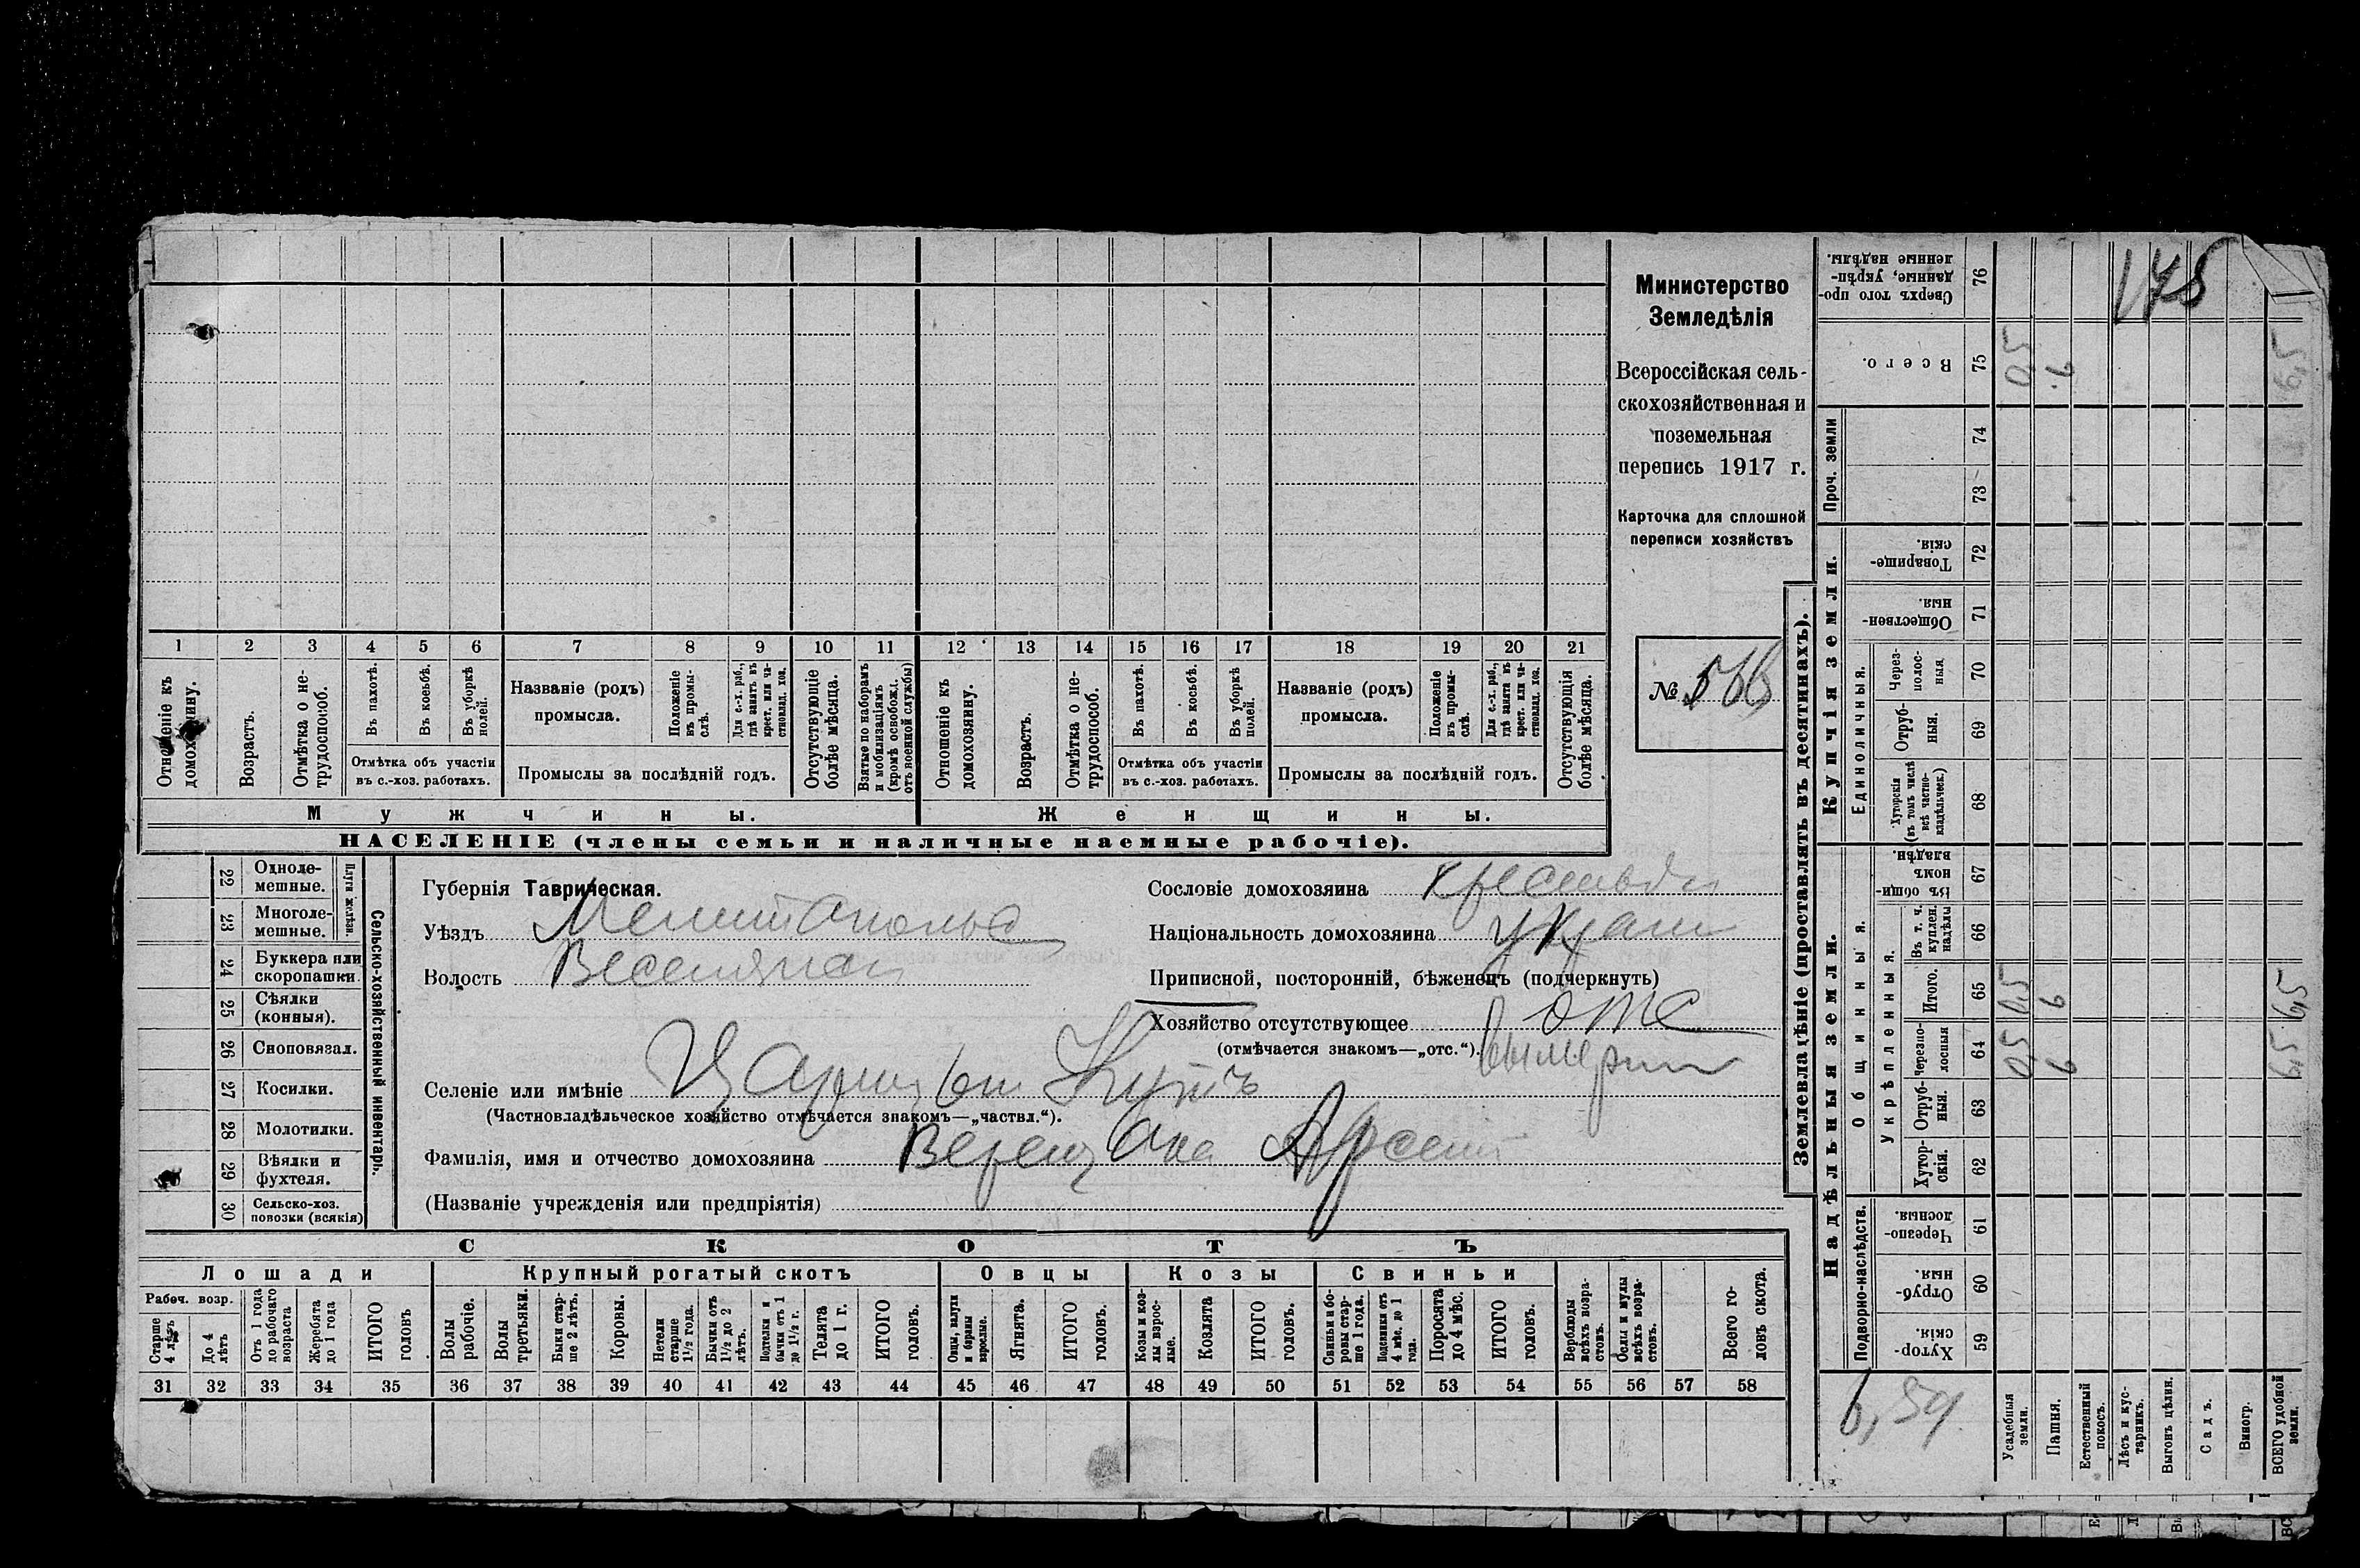 Министерство
Земледѣлія
Всероссійская сель-
скохозяйственная и
поземельная
перепись 1917 г.
Карточка для сплошной
переписи хозяйствъ
№
1 2 3 4 5 6 7 8 9 10 11 12 13 14 15 16 17 18 19 20 21
Отношеніе къ домохозяину.
Возрастъ.
Отмѣтка о не-
трудоспособ.
Въ пахотѣ.
Въ косьбѣ.
Въ уборкѣ
полей.
Отмѣтка объ участіи
въ с.-хоз. работахъ.
Названіе (родъ)
промысла.
Положеніе
въ промы-
слѣ.
Для с.-х. раб.,
гдѣ занятъ въ
крест. или ча-
стновлад. хоз.
Промыслы за послѣдній годъ.
Отсутствующіе
болѣе мѣсяца.
Взятые по наборамъ
и мобилизаціямъ
(кромѣ освобожд.
отъ военной службы)
Отношеніе къ
домохозяину.
Возрастъ.
Отмѣтка о не-
трудоспособ.
Въ пахотѣ.
Въ косьбѣ.
Въ уборкѣ
полей.
Отмѣтка объ участіи
въ с.-хоз. работахъ.
Названіе (родъ)
промысла.
Положеніе
въ промы-
слѣ.
Для с.-х. раб.,
гдѣ заняты въ
крест. или ча-
стновлад. хоз.
Промыслы за послѣдній годъ.
Отсутствующія
болѣе мѣсяца.
Мужчины.
Женщины.
НАСЕЛЕНІЕ (члены семьи и наличные наемные рабочіе).
22 Одноле-
мешные.
23 Многоле-
мешные.
Плуги желѣзн.
24 Буккера или
скоропашки.
25 Сѣялки
(конныя).
26 Сноповязал.
27 Косилки.
28 Молотилки.
29 Вѣялки и
фухтеля.
30 Сельско-хоз.
повозки (всякія)
Сельско-хозяйственный инвентарь.
Губернія Таврическая.
Уѣздъ Мелитопольс
Волость Веселянская
Сословіе домохозяина крестьян
Національность домохозяина украин
Приписной, посторонній, бѣженецъ (подчеркнуть)
Хозяйство отсутствующее отс
(отмѣчается знакомъ—„отс.“). вымерли
Селеніе или имѣніе Царицын Кутъ
(Частновладѣльческое хозяйство отмѣчается знакомъ—„частвл.“).
Фамилія, имя и отчество домохозяина Верещака Арсеній
(Названіе учрежденія или предпріятія)
СКОТЪ
Лошади
Крупный рогатый скотъ
Овцы
Козы
Свиньи
Рабоч. возр.
Старше
4 лѣтъ
До 4
лѣтъ
Отъ 1 года
до рабочаго
возраста
Жеребята
до 1 года
ИТОГО
головъ
Волы
рабочіе.
Волы
третьяки.
Быки стар-
ше 2 лѣтъ.
Коровы.
Нетели
старше
1½ года.
Бычки отъ
1½ до 2
лѣтъ.
Подтелки и
бычки отъ 1
до 1½ г.
Телята
до 1 г.
ИТОГО
головъ.
Овцы, валухи
и бараны
взрослые.
Ягнята.
ИТОГО
головъ.
Козы и коз-
лы взрос-
лые.
Козлята
ИТОГО
головъ.
Свиньи и бо-
ровы стар-
ше 1 года.
Подсвинки отъ
4 мѣс. до 1
года.
Поросята
до 4 мѣс.
ИТОГО
головъ.
Верблюды
всѣхъ возра-
стовъ.
Ослы и мулы
всѣхъ возра-
стовъ.
Всего го-
ловъ скота.
31 32 33 34 35 36 37 38 39 40 41 42 43 44 45 46 47 48 49 50 51 52 53 54 55 56 57 58
Землевладѣніе (проставлять въ десятинахъ).
145
Сверхъ того про-
данные, укрѣп-
ленные надѣлы.
76
Всего.
75 0,5 6 6,5
Проч. земли
74
73
Купчія земли.
Товарище-
скія.
72
Обществен-
ныя.
71
Единоличныя.
Через-
полос-
ныя.
70
Отруб-
ныя.
69
Хуторскія
(въ томъ числѣ
всѣ частно-
владѣльческ.)
68
Надѣльныя земли.
Общинныя.
Въ общин-
номъ
владѣн.
67
Укрѣпленныя.
Въ т. ч.
куплен.
надѣлы
66
Итого.
65 0,5 6 6,5
Черезпо-
лосныя
64 0,5 6 6,5
Отруб-
ныя.
63
Хутор-
скія.
62
Подворно-наслѣдств.
Черезпо-
лосныя.
61
Отруб-
ныя.
60
Хутор-
скія.
59
6,59
Усадебныя
земли.
Пашня.
Естественный
покосъ.
Лѣсъ и кус-
тарникъ.
Выгонъ цѣлин.
Садъ.
Виногр.
ВСЕГО удобной
земли.